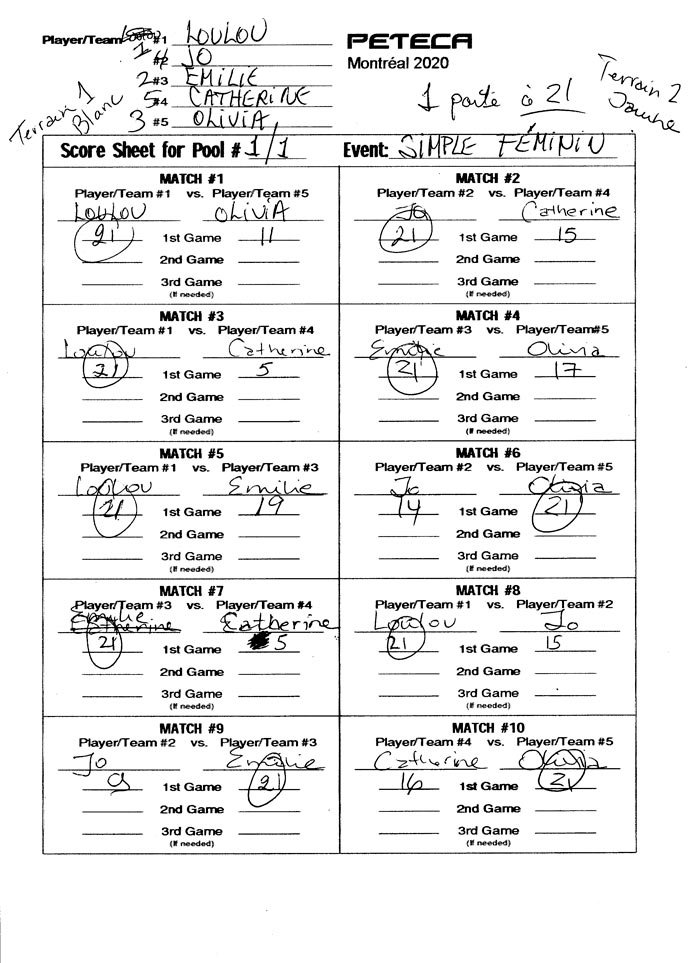 Player/Team #1 LOULOU
1 #2 JO
2 #3 EMILIE
5 #4 CATHERINE
3 #5 OLIVIA
PETECA
Montréal 2020
Terrain 1
Blanc
1 partie à 21
Terrain 2
Jaune
Score Sheet for Pool # 1/1 Event: SIMPLE FÉMININ
MATCH #1
Player/Team #1 vs. Player/Team #5
LOULOU OLIVIA
21 1st Game 11
2nd Game
3rd Game
(If needed)
MATCH #2
Player/Team #2 vs. Player/Team #4
Jo Catherine
21 1st Game 15
2nd Game
3rd Game
(If needed)
MATCH #3
Player/Team #1 vs. Player/Team #4
Loulou Catherine
21 1st Game 5
2nd Game
3rd Game
(If needed)
MATCH #4
Player/Team #3 vs. Player/Team#5
Emilie Olivia
21 1st Game 17
2nd Game
3rd Game
(If needed)
MATCH #5
Player/Team #1 vs. Player/Team #3
Loulou Emilie
21 1st Game 19
2nd Game
3rd Game
(If needed)
MATCH #6
Player/Team #2 vs. Player/Team #5
Jo Olivia
14 1st Game 21
2nd Game
3rd Game
(If needed)
MATCH #7
Player/Team #3 vs. Player/Team #4
Emilie
Catherine Catherine
21 1st Game 5
2nd Game
3rd Game
(If needed)
MATCH #8
Player/Team #1 vs. Player/Team #2
Loulou Jo
21 1st Game 15
2nd Game
3rd Game
(If needed)
MATCH #9
Player/Team #2 vs. Player/Team #3
Jo Emilie
9 1st Game 21
2nd Game
3rd Game
(If needed)
MATCH #10
Player/Team #4 vs. Player/Team #5
Catherine Olivia
16 1st Game 21
2nd Game
3rd Game
(If needed)